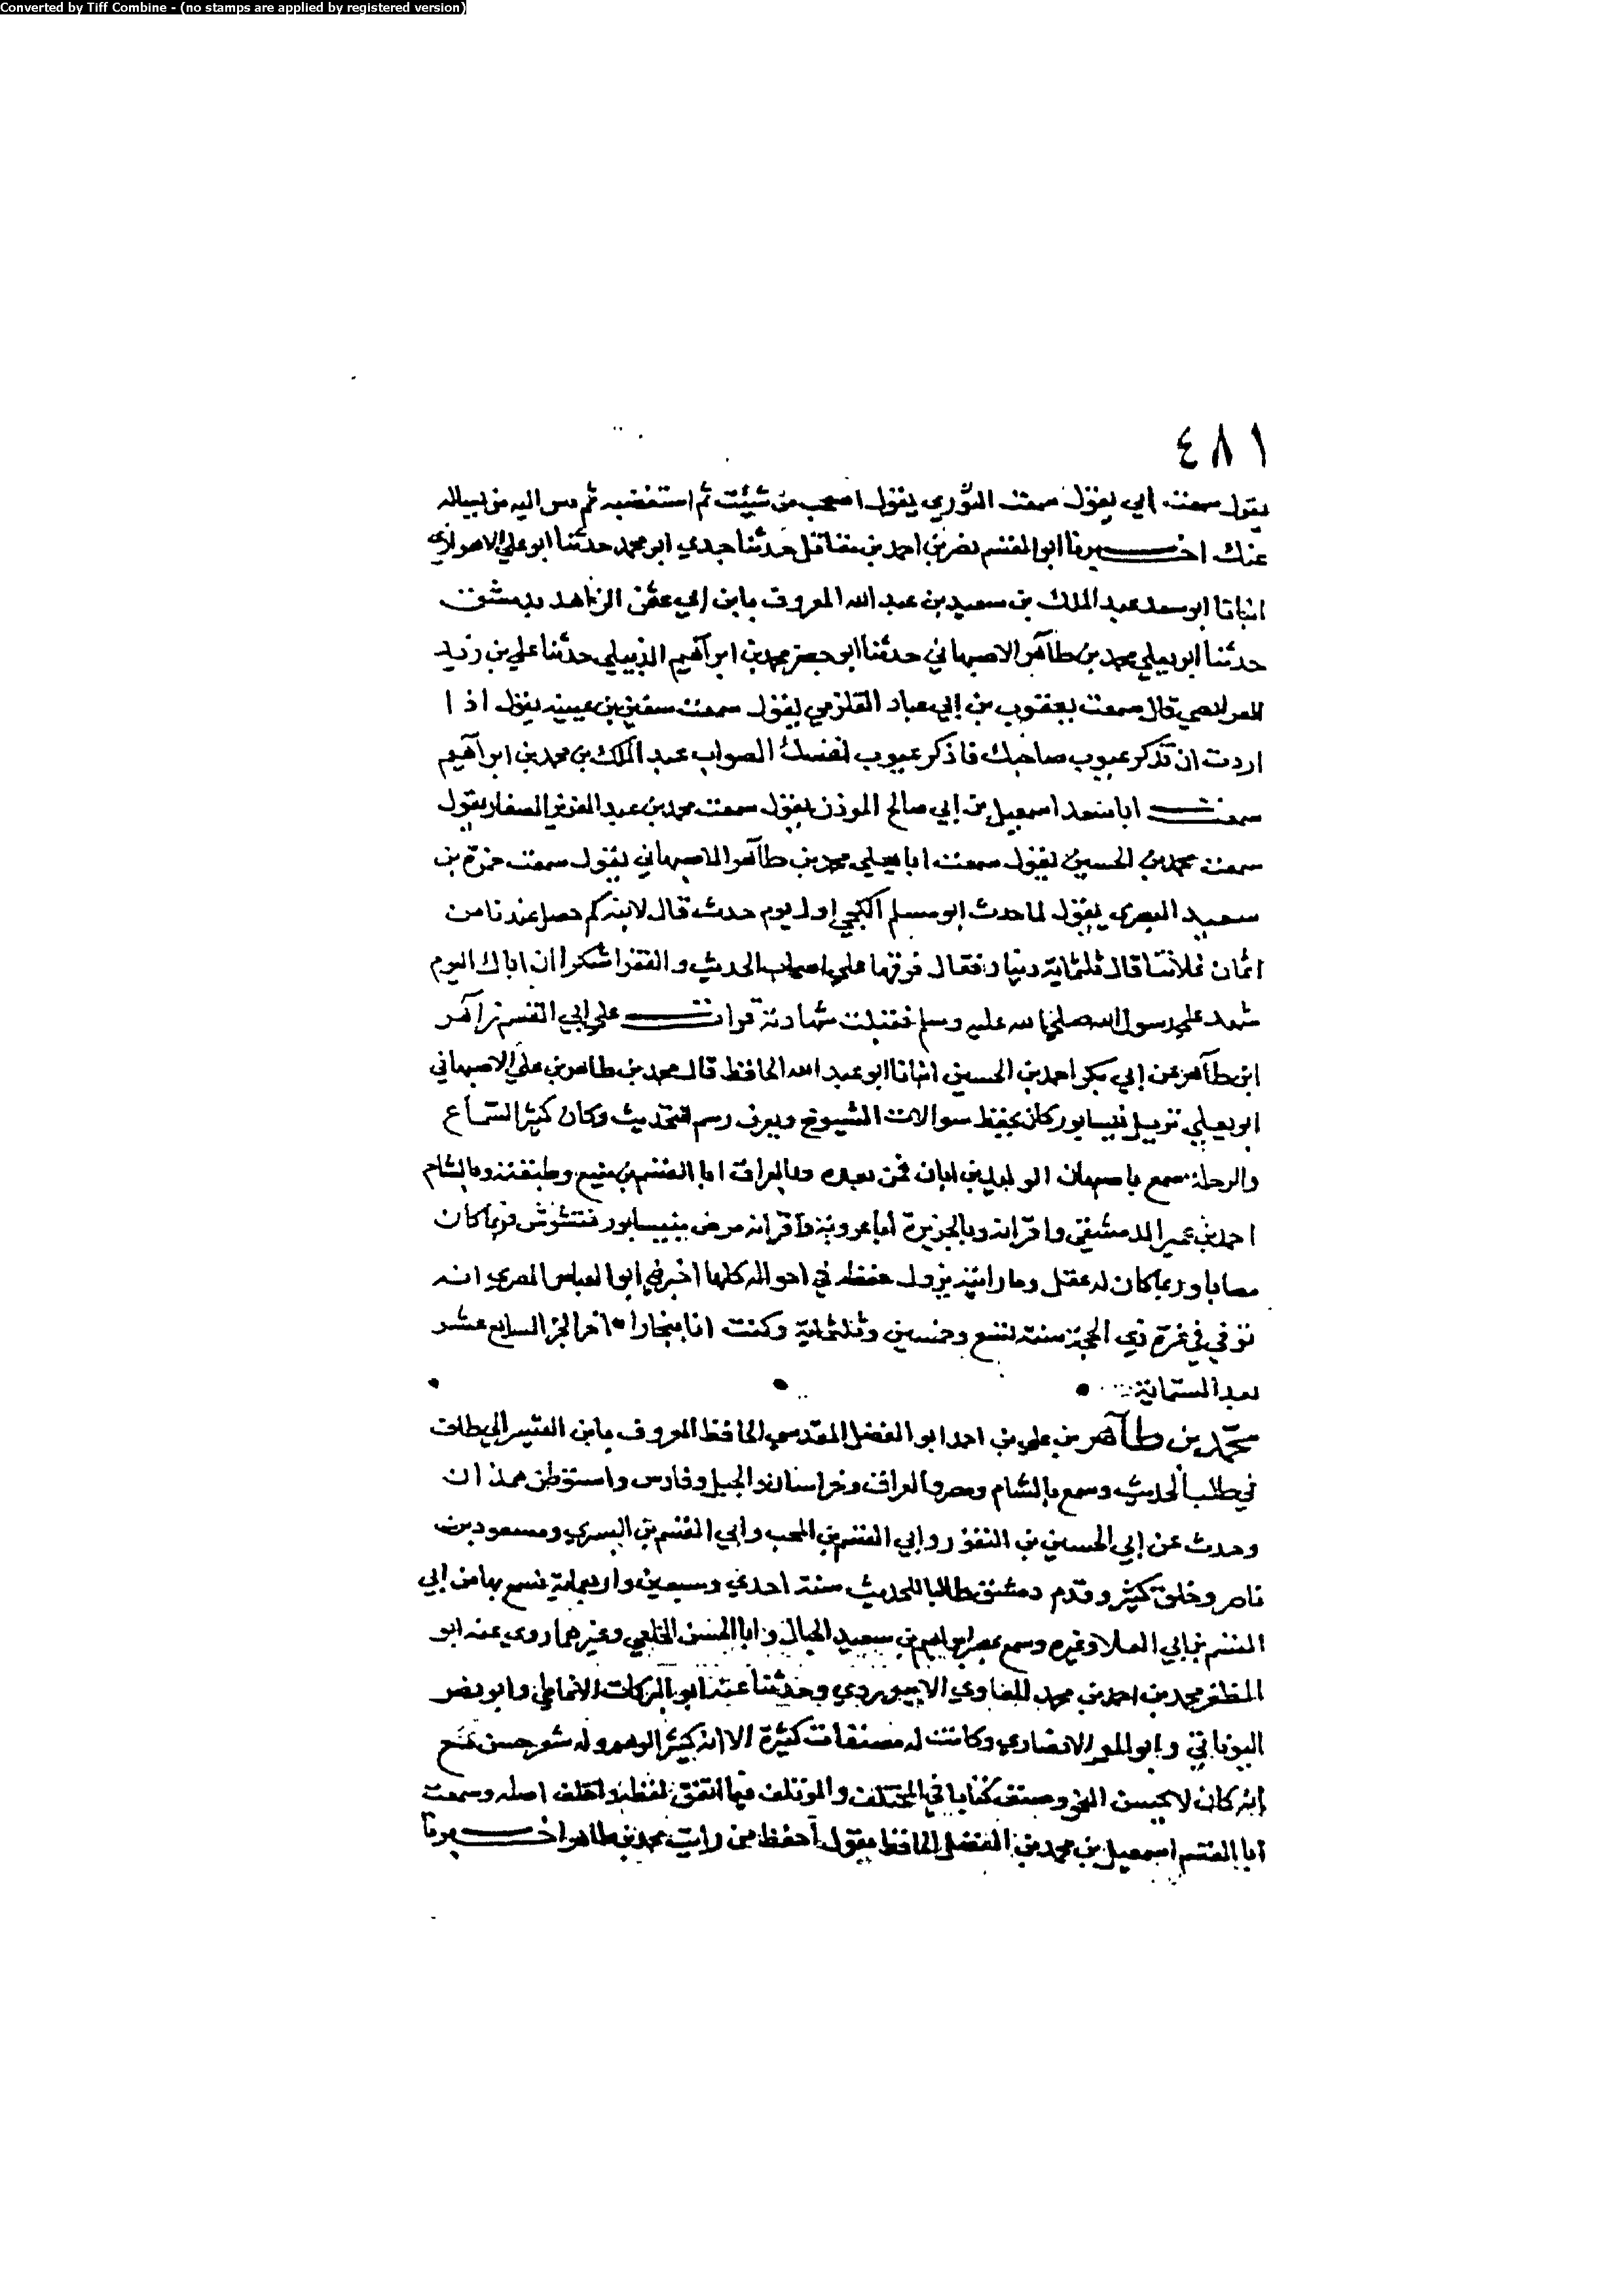 Converted by Tiff Combine - (no stamps are applied by registered version)
٤٨١
يقول سمعت ابي يقول سمعت الثوري يقول اصحب من شئت ثم استغضبه ثم دس اليه من يساله
عنك اخبرنا ابو القسم نصر بن احمد بن مقاتل حدثنا جدي ابو محمد حدثنا ابو علي الاهوازي
انبانا ابو سعد عبد الملك بن سعيد بن عبد الله المعروف بابن ابي عثمن الزاهد بدمشق
حدثنا ابو يعلي محمد بن طاهر الاصبهاني حدثنا ابو جعفر محمد بن ابراهيم الديبلي حدثنا علي بن زيد
الفرايضي قال سمعت يعقوب بن ابي عباد القلزمي يقول سمعت سفين بن عيينه يقول اذا
اردت ان تذكر عيوب صاحبك فاذكر عيوب نفسك الصواب عبد الملك بن محمد بن ابراهيم
سمعت ابا سعد اسمعيل بن ابي صالح الموذن يقول سمعت محمد بن عبد العزيز الصفار يقول
سمعت محمد بن الحسين يقول سمعت ابا يعلي محمد بن طاهر الاصبهاني يقول سمعت حمزة بن
سعيد البصري يقول لما حدث ابو مسلم الكجي اول يوم حدث قال لابنه كم حصل عندنا من
اثمان غلاتنا قال ثلثماية دينار فقال فرقها علي اصحاب الحديث والفقرا شكرا ان اباك اليوم
شهد علي رسول الله صلي الله عليه وسلم فقبلت شهادته قرات علي ابي القسم زاهر
ابن طاهر عن ابي بكر احمد بن الحسين انبانا ابو عبد الله الحافظ قال محمد بن طاهر بن علي الاصبهاني
ابو يعلي نزيل نيسابور كان يحفظ سوالات الشيوخ ويعرف رسم التحديث وكان كثير السماع
والرحلة سمع باصبهان الوليد بن ابان فمن بعده وبالعراق ابا القسم بن منيع وطبقته وبالشام
احمد بن عمير الدمشقي واقرانه وبالجزيرة ابا عروبة واقرانه مرض بنيسابور فتشوش فربما كان
مصابا وربما كان له عقل وما رايته يزول حفظه في احواله كلها اخبرني ابو العباس المصري انه
توفي في غرة ذي الحجة سنة تسع وخمسين وثلثماية وكنت انا ببخارا اخر الجز السابع عشر
بعد الستماية
محمد بن طاهر بن علي بن احمد ابو الفضل المقدسي الحافظ المعروف بابن القيسراني طاف
في طلب الحديث وسمع بالشام ومصر والعراق وخراسان والجبل وفارس واستوطن همذان
وحدث عن ابي الحسين بن النقور وابي القسم بن المحب وابي القسم بن البسري ومسعود بن
ناصر وخلق كثير وقدم دمشق طالبا للحديث سنة احدي وسبعين واربعماية فسمع بها من ابي
القسم بن ابي العلا وغيره وسمع بمصر ابراهيم بن سعيد الحبال وابا الحسن الخلعي وغيرهما روى عنه ابو
المظفر محمد بن احمد بن محمد المعاوي الابيوردي وحدثنا عنه ابو البركات الانماطي وابو نصر
اليوناتي وابو المعمر الانصاري وكانت له مصنفات كثيرة الا انه كثير الوهم وله شعر حسن مع
انه كان لا يحسن النحو وصنف كتابا في المختلف والموتلف فيما اتفق لفظه واختلف اصله وسمعت
ابا القسم اسمعيل بن محمد بن الفضل الحافظ يقول احفظ من رايت محمد بن طاهر اخبرنا